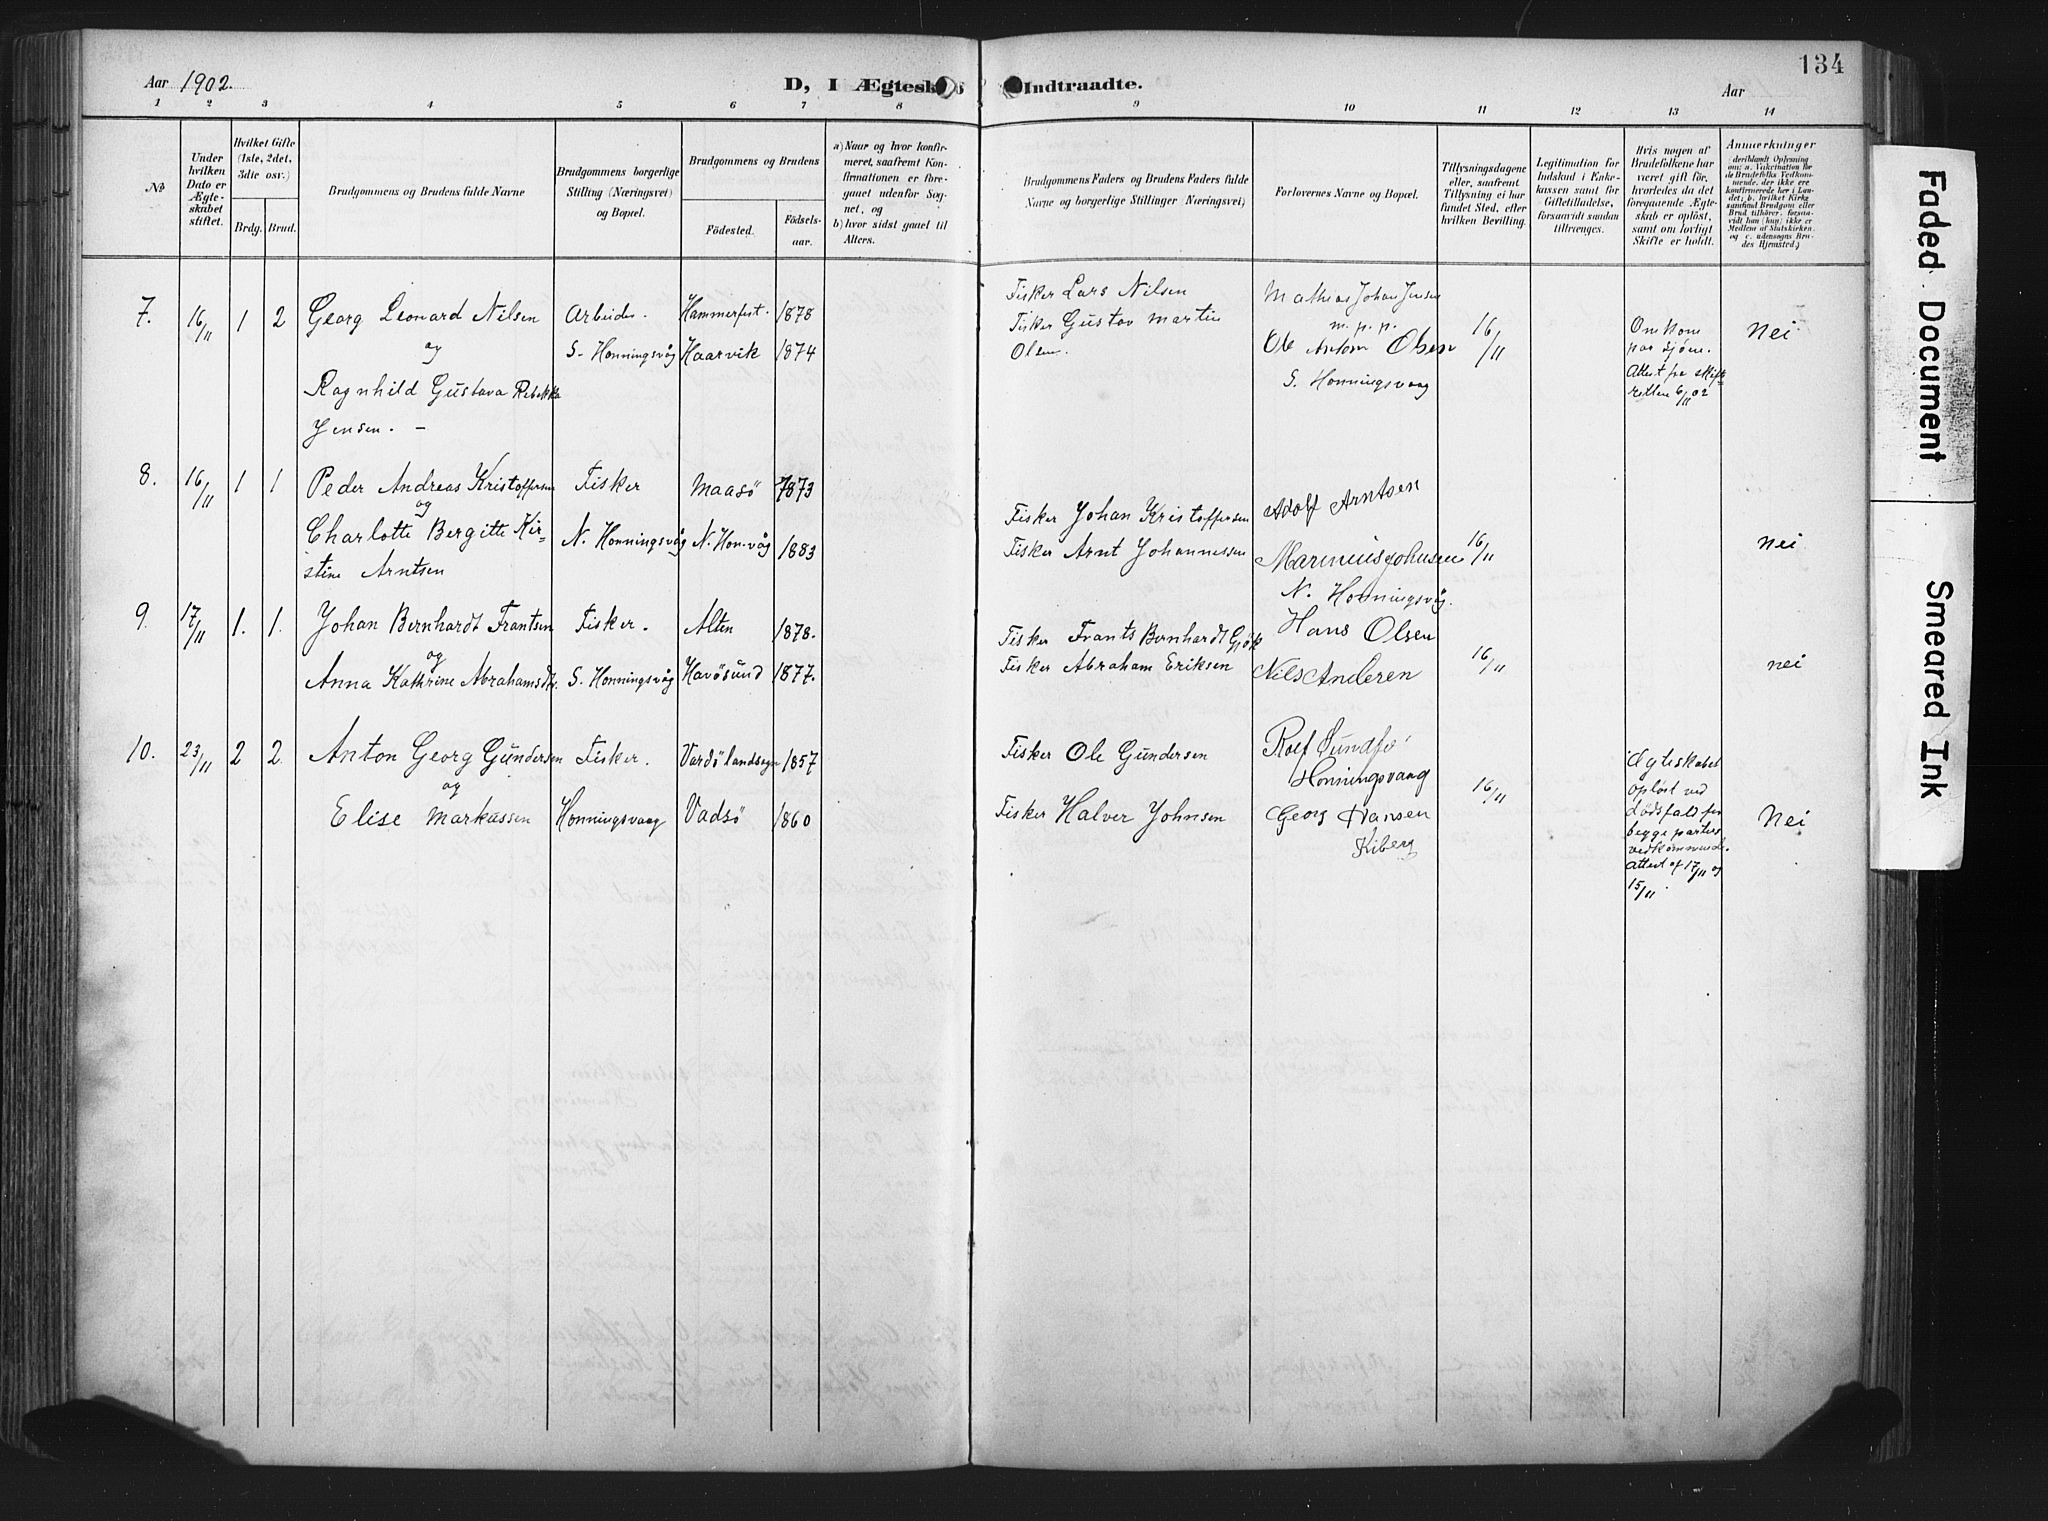 134
Aar 1902.
D, I Ægtesk
Indtraadte.
Aar
1 2 3 4 5 6 7 8 9 10 11 12 13 14
No
Under hvilken Dato er Ægteskabet stiftet.
Hvilket Gifte (1ste, 2det, 3die osv.)
Brdg. Brud.
Brudgommens og Brudens fulde Navne
Brudgommens borgerlige Stilling (Næringsvei) og Bopæl.
Brudgommens og Brudens
Fødested.
Fødselsaar.
a) Naar og hvor konfirmeret, saafremt Konfirmationen er foregaaet udenfor Sognet, og
b) hvor sidst gaaet til Alters.
Brudgommens Faders og Brudens Faders fulde Navne og borgerlige Stillinger Næringsvei)
Forlovernes Navne og Bopæl.
Tillysningsdagene eller, saafremt Tillysning ei har fundet Sted, efter hvilken Bevilling.
Legitimation for Indskud i Enkekassen samt for Giftetilladelse, forsaavidt saadan tiltrænges.
Hvis nogen af Brudefolkene har været gift før, hvorledes da det foregaaende Ægteskab er opløst, samt om lovligt Skifte er holdt.
Anmerkninger
deriblandt Oplysning om: a. Vakcination for de Brudefolks Vedkommende, der ikke ere konfirmerede her i Landet; b. hvilket Kirkesamfund Brudgom eller Brud tilhører, forsaavidt han (hun) ikke er Medlem af Statskirken, og c. udensogns Brudes Hjemsted.)
7. 16/11 1 2 Georg Leonard Nilsen Arbeider. Hammerfest. 1878
og
S. Honningsvåg Haarvik 1874
Ragnhild Gustava Rebekka
Jensen. –
Fisker Lars Nilsen
Fisker Gustav Martin
Olsen.
Mathias Johan Jensen
m. p. p.
Ole Anton Olsen
S. Honningsvaag
16/11
Omkom
paa sjøen.
Attest fra skif-
retten 6/11 02
Nei
8. 16/11 1 1 Peder Andreas Kristoffersen Fisker Maasö 1873
og
Charlotte Bergitte Kir- N. Honningsvåg N. Hon.våg 1883
stine Arntsen
Fisker Johan Kristoffersen
Fisker Arnt Johannessen
Adolf Arntsen
Marinius Johnsen
N. Honningsvåg.
16/11
nei
9. 17/11 1. 1. Johan Bernhardt Frantsen Fisker. Alten 1878.
og
Anna Kathrine Abrahamsdtr. S. Honningsvåg Havösund 1877.
Fisker Frants Bernhardt Gjök
Fisker Abraham Eriksen
Hans Olsen
Nils Anderen
16/11
nei
10. 23/11 2 2. Anton Georg Gundersen Fisker. Vardö landsogn 1857
og
Elise Markussen Honningsvaag Vadsö 1860
Fisker Ole Gundersen
Fisker Halver Johnsen
Rolf Sundfö
Honningsvaag
Georg Hansen
Kiberg
16/11
Ægteskabet
opløst ved
dødsfald for
begge parters
vedkommende.
Attest af 17/11 og
15/11
Nei
Faded Document
Smeared Ink